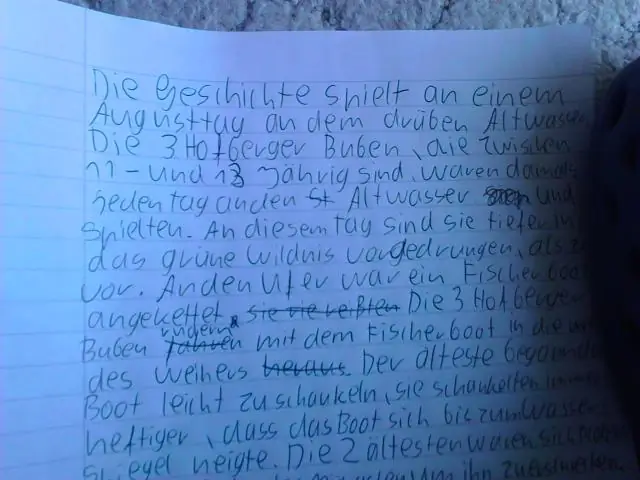 Die Geschichte spielt an einem
Augusttag an dem drüben Altwasser
Die 3 Hofberger Buben, die zwischen
11- und 13 Jährig sind. waren damals
jeden tag an den St Altwasser und
spielten. An diesem tag sind sie tiefer in
das grüne Wildnis vorgedrungen, als
vor. An den Ufer war ein Fischerboot
angekettet, sie sie reißten Die 3 Hofberger
rudern
Buben fahren mit dem Fischerboot in die
des weihers heraus. Der älteste begann
Boot leicht zu schaukeln, sie schaukelten immer
heftiger, dass das Boot sich bis zum Wasser
spiegel neigte. Die 2 ältesten waren sich
um ihn zu erschrecken.